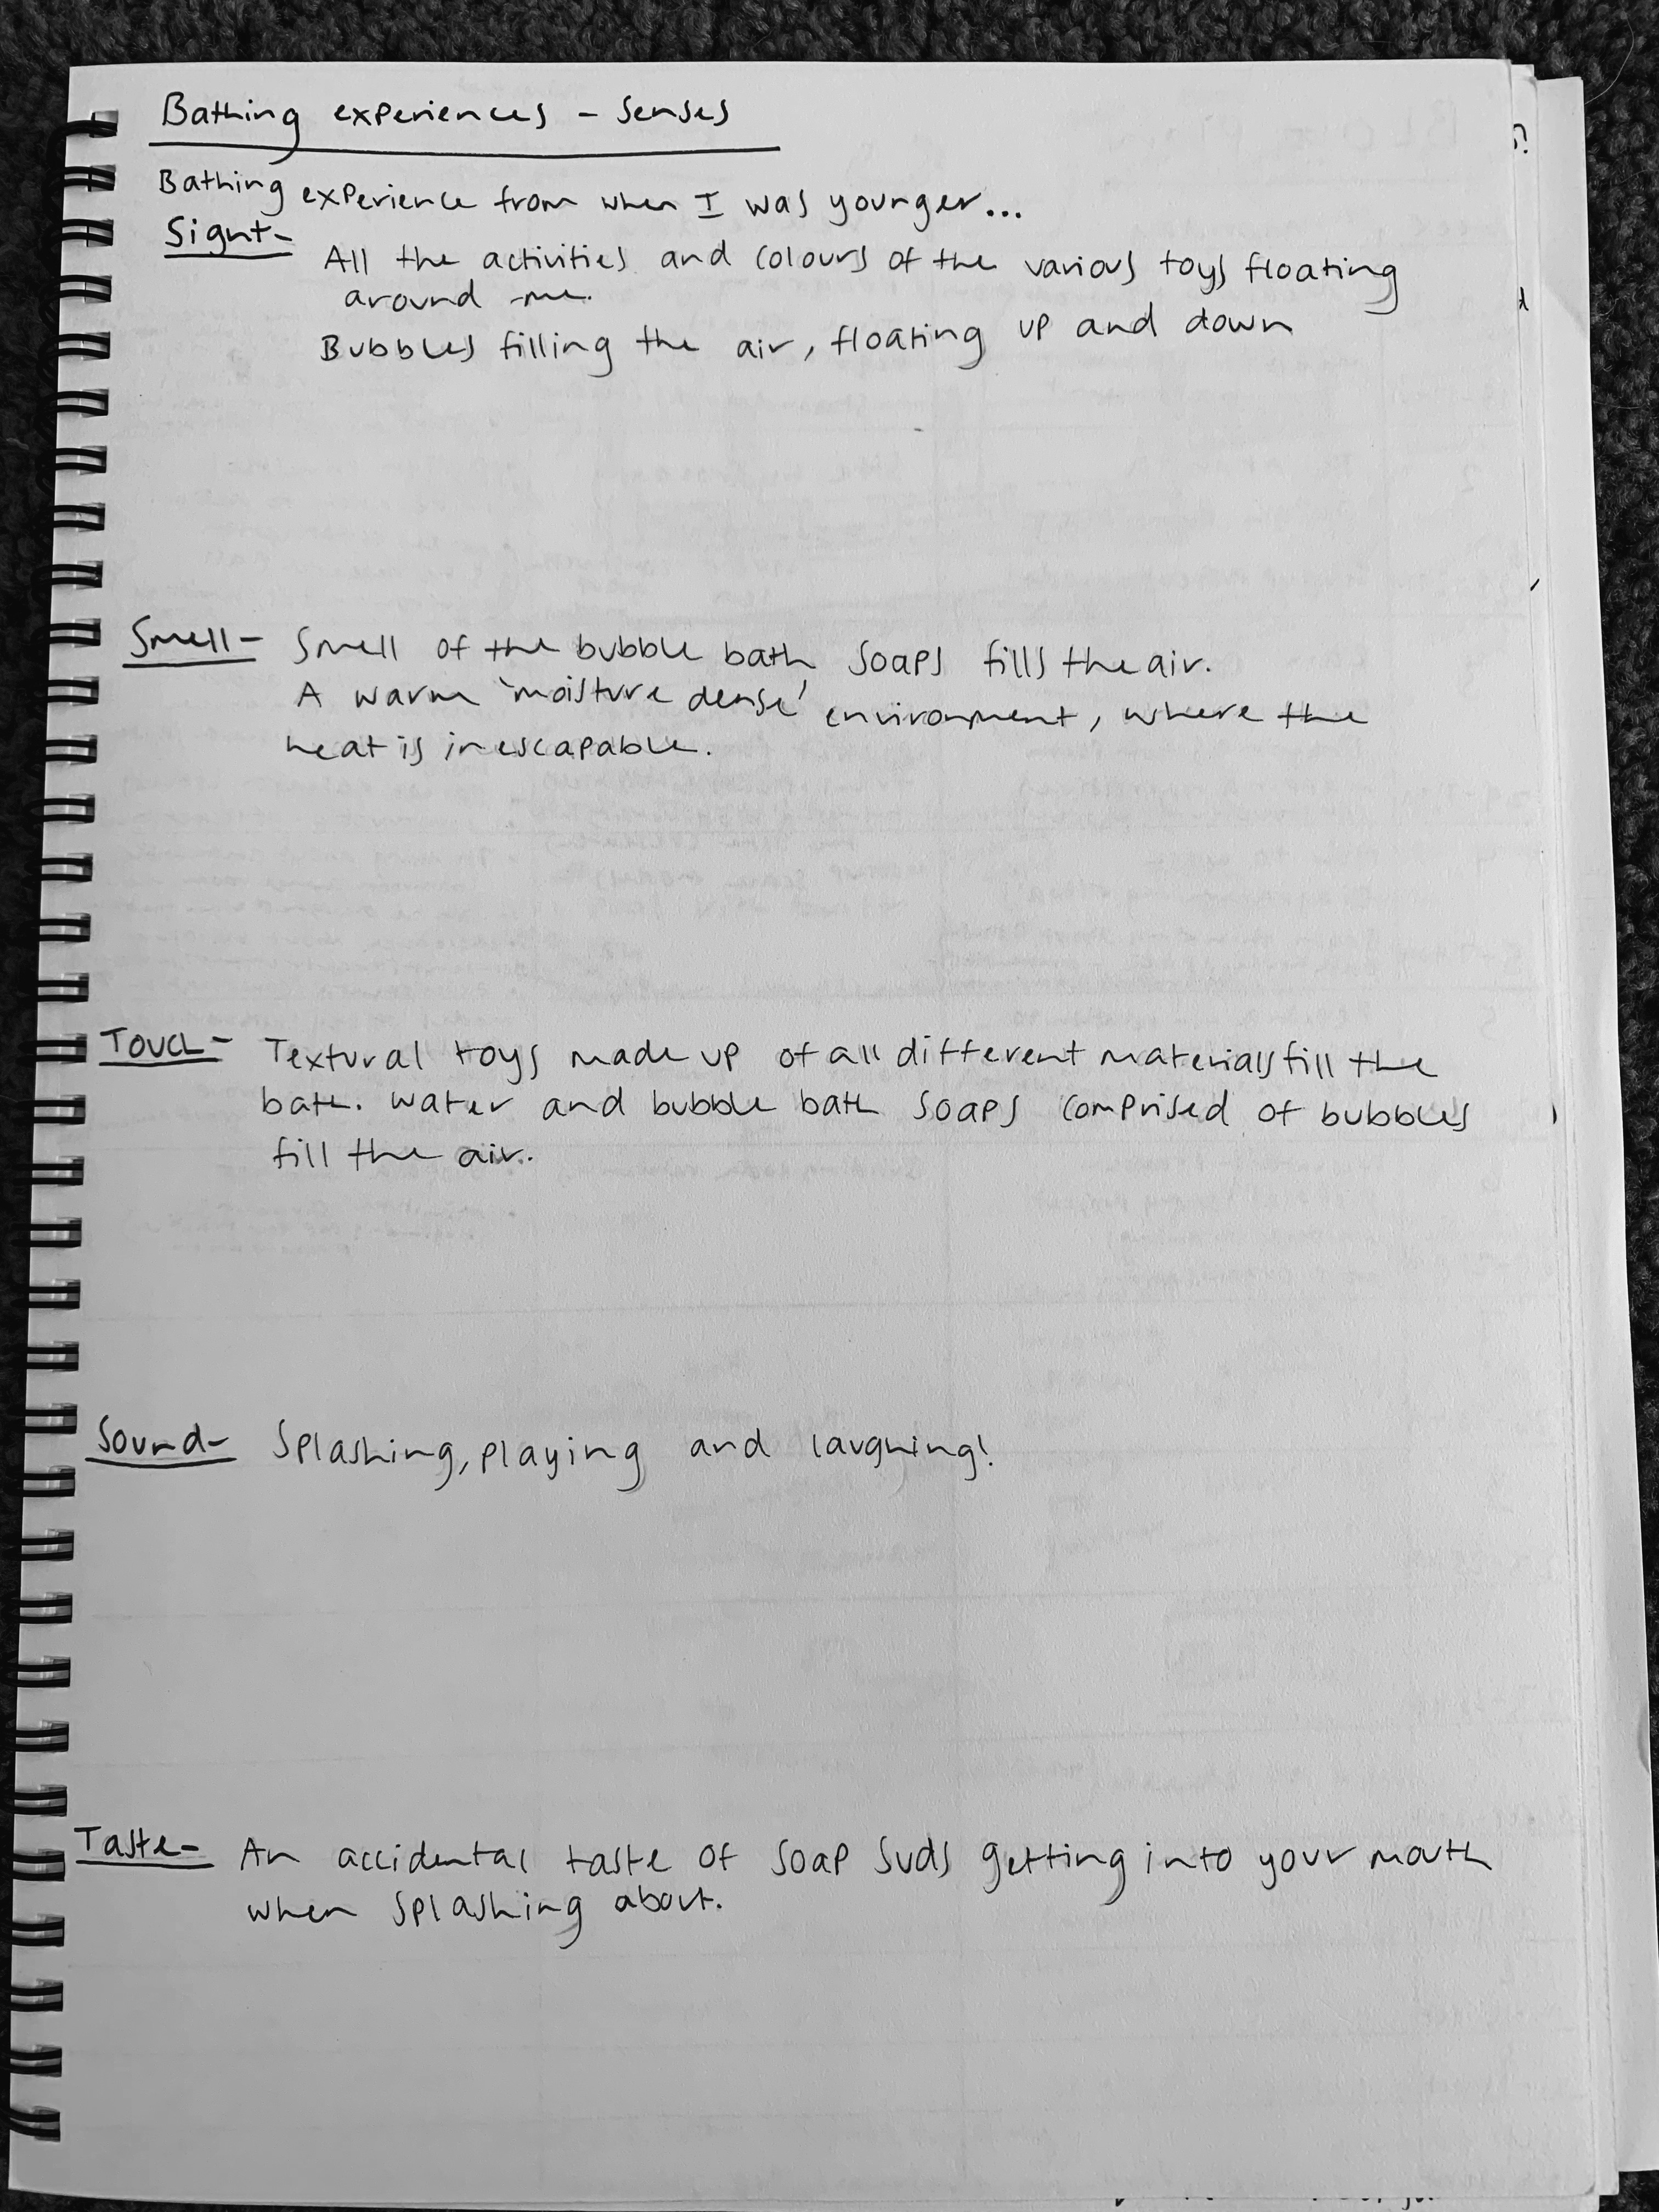 Bathing experiences - Senses
Bathing experience from when I was younger...
Sight-
All the activities and colours of the various toys floating
around me.
Bubbles filling the air, floating up and down
Smell- Smell of the bubble bath soaps fills the air.
A warm 'moisture dense' environment, where the
heat is inescapable.
Touch- Textural toys made up of all different materials fill the
bath. Water and bubble bath soaps comprised of bubbles
fill the air.
Sound- Splashing, playing and laughing!
Taste- An accidental taste of soap suds getting into your mouth
when splashing about.